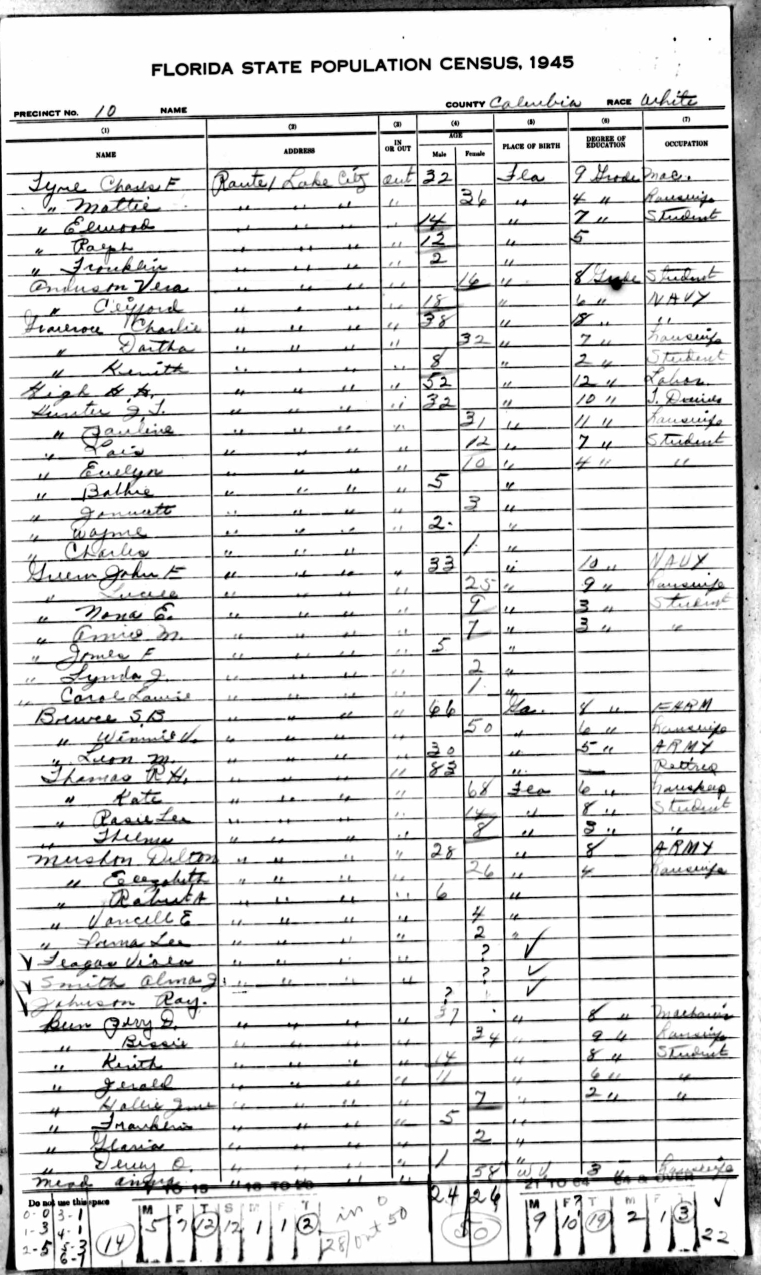 FLORIDA STATE POPULATION CENSUS, 1945
PRECINCT NO. 10 NAME COUNTY Columbia RACE White
(1) (2) (3) (4) (5) (6) (7)
NAME ADDRESS IN OR OUT AGE Male Female PLACE OF BIRTH DEGREE OF EDUCATION OCCUPATION
Tyre Charls F Route 1 Lake City out 32 Fla 9 Grade Mac.
" Mattie " " " " 36 " 4 " housewife
" Elwood " " " " 14 " 7 " Student
" Ralph " " " " 12 " 5
" Franklin " " " " 2 "
Anderson Vera " " " " 16 " 8 Grade Student
" Clifford " " " " 18 " 6 " NAVY
Charlie " " " " 38 " 8 " "
" Dortha " " " " 32 " 7 " housewife
" Kenith " " " " 8 " 2 " Student
High H. H. " " " " 52 " 12 " Labor
Hunter J. T. " " " " 32 " 10 " T.
" Pauline " " " " 31 " 11 " housewife
" Lois " " " " 12 " 7 " Student
" Evelyn " " " " 10 " 4 " "
" Bobbie " " " " 5 "
" " " " " 3 "
" Wayne " " " " 2 "
" Charles " " " " 1 "
Green John F " " " " 33 " 10 " NAVY
" Lucile " " " " 25 " 9 " housewife
" Nona E. " " " " 9 " 3 " Student
" Annie M. " " " " 7 " 3 " "
" James F " " " " 5 "
" Lynda J. " " " " 2 "
" Carol " " " " 1 "
S. B " " " " 66 Ga. 4 " FARM
" Winnie V. " " " " 50 " 6 " housewife
" Leon M. " " " " 30 " 5 " ARMY
Thomas R. H. " " " " 83 " —
" Kate " " " " 68 Fla 6 "
" Rosie Lee " " " " 14 " 8 " Student
" Thelma " " " " 8 " 3 " "
Dilton " " " " 28 " 8 ARMY
" Elezabeth " " " " 26 " 4 housewife
" Robert A " " " " 6 "
" Voncille E " " " " 4 "
" Lee " " " " 2 "
✓ Viola " " " " ? ✓
✓ Smith Alma J. " " " " ? ✓
✓ Johnson Ray. ? ✓
D. " " " " 37 " 8 "
" Bessie " " " " 34 " 9 " housewife
" Kenith " " " " 14 " 8 " Student
" Jerald " " " " 11 " 6 " "
" Hallie June " " " " 7 " 2 " "
" Franklin " " " " 5 "
" Gloria " " " " 2 "
" O. " " " " 1 "
" " " " 58 W V 3 " housewife
24 26
Do not use this space 7 TO 15 21 TO 64 64 & OVER ✓
0-0 3-1 M F T S M F T in 0 M F? T M F T
1-3 4-1 14 5 7 12 12 1 1 2 28 out 50 50 9 10 19 2 1 3
2-5 5-3 22
6-1